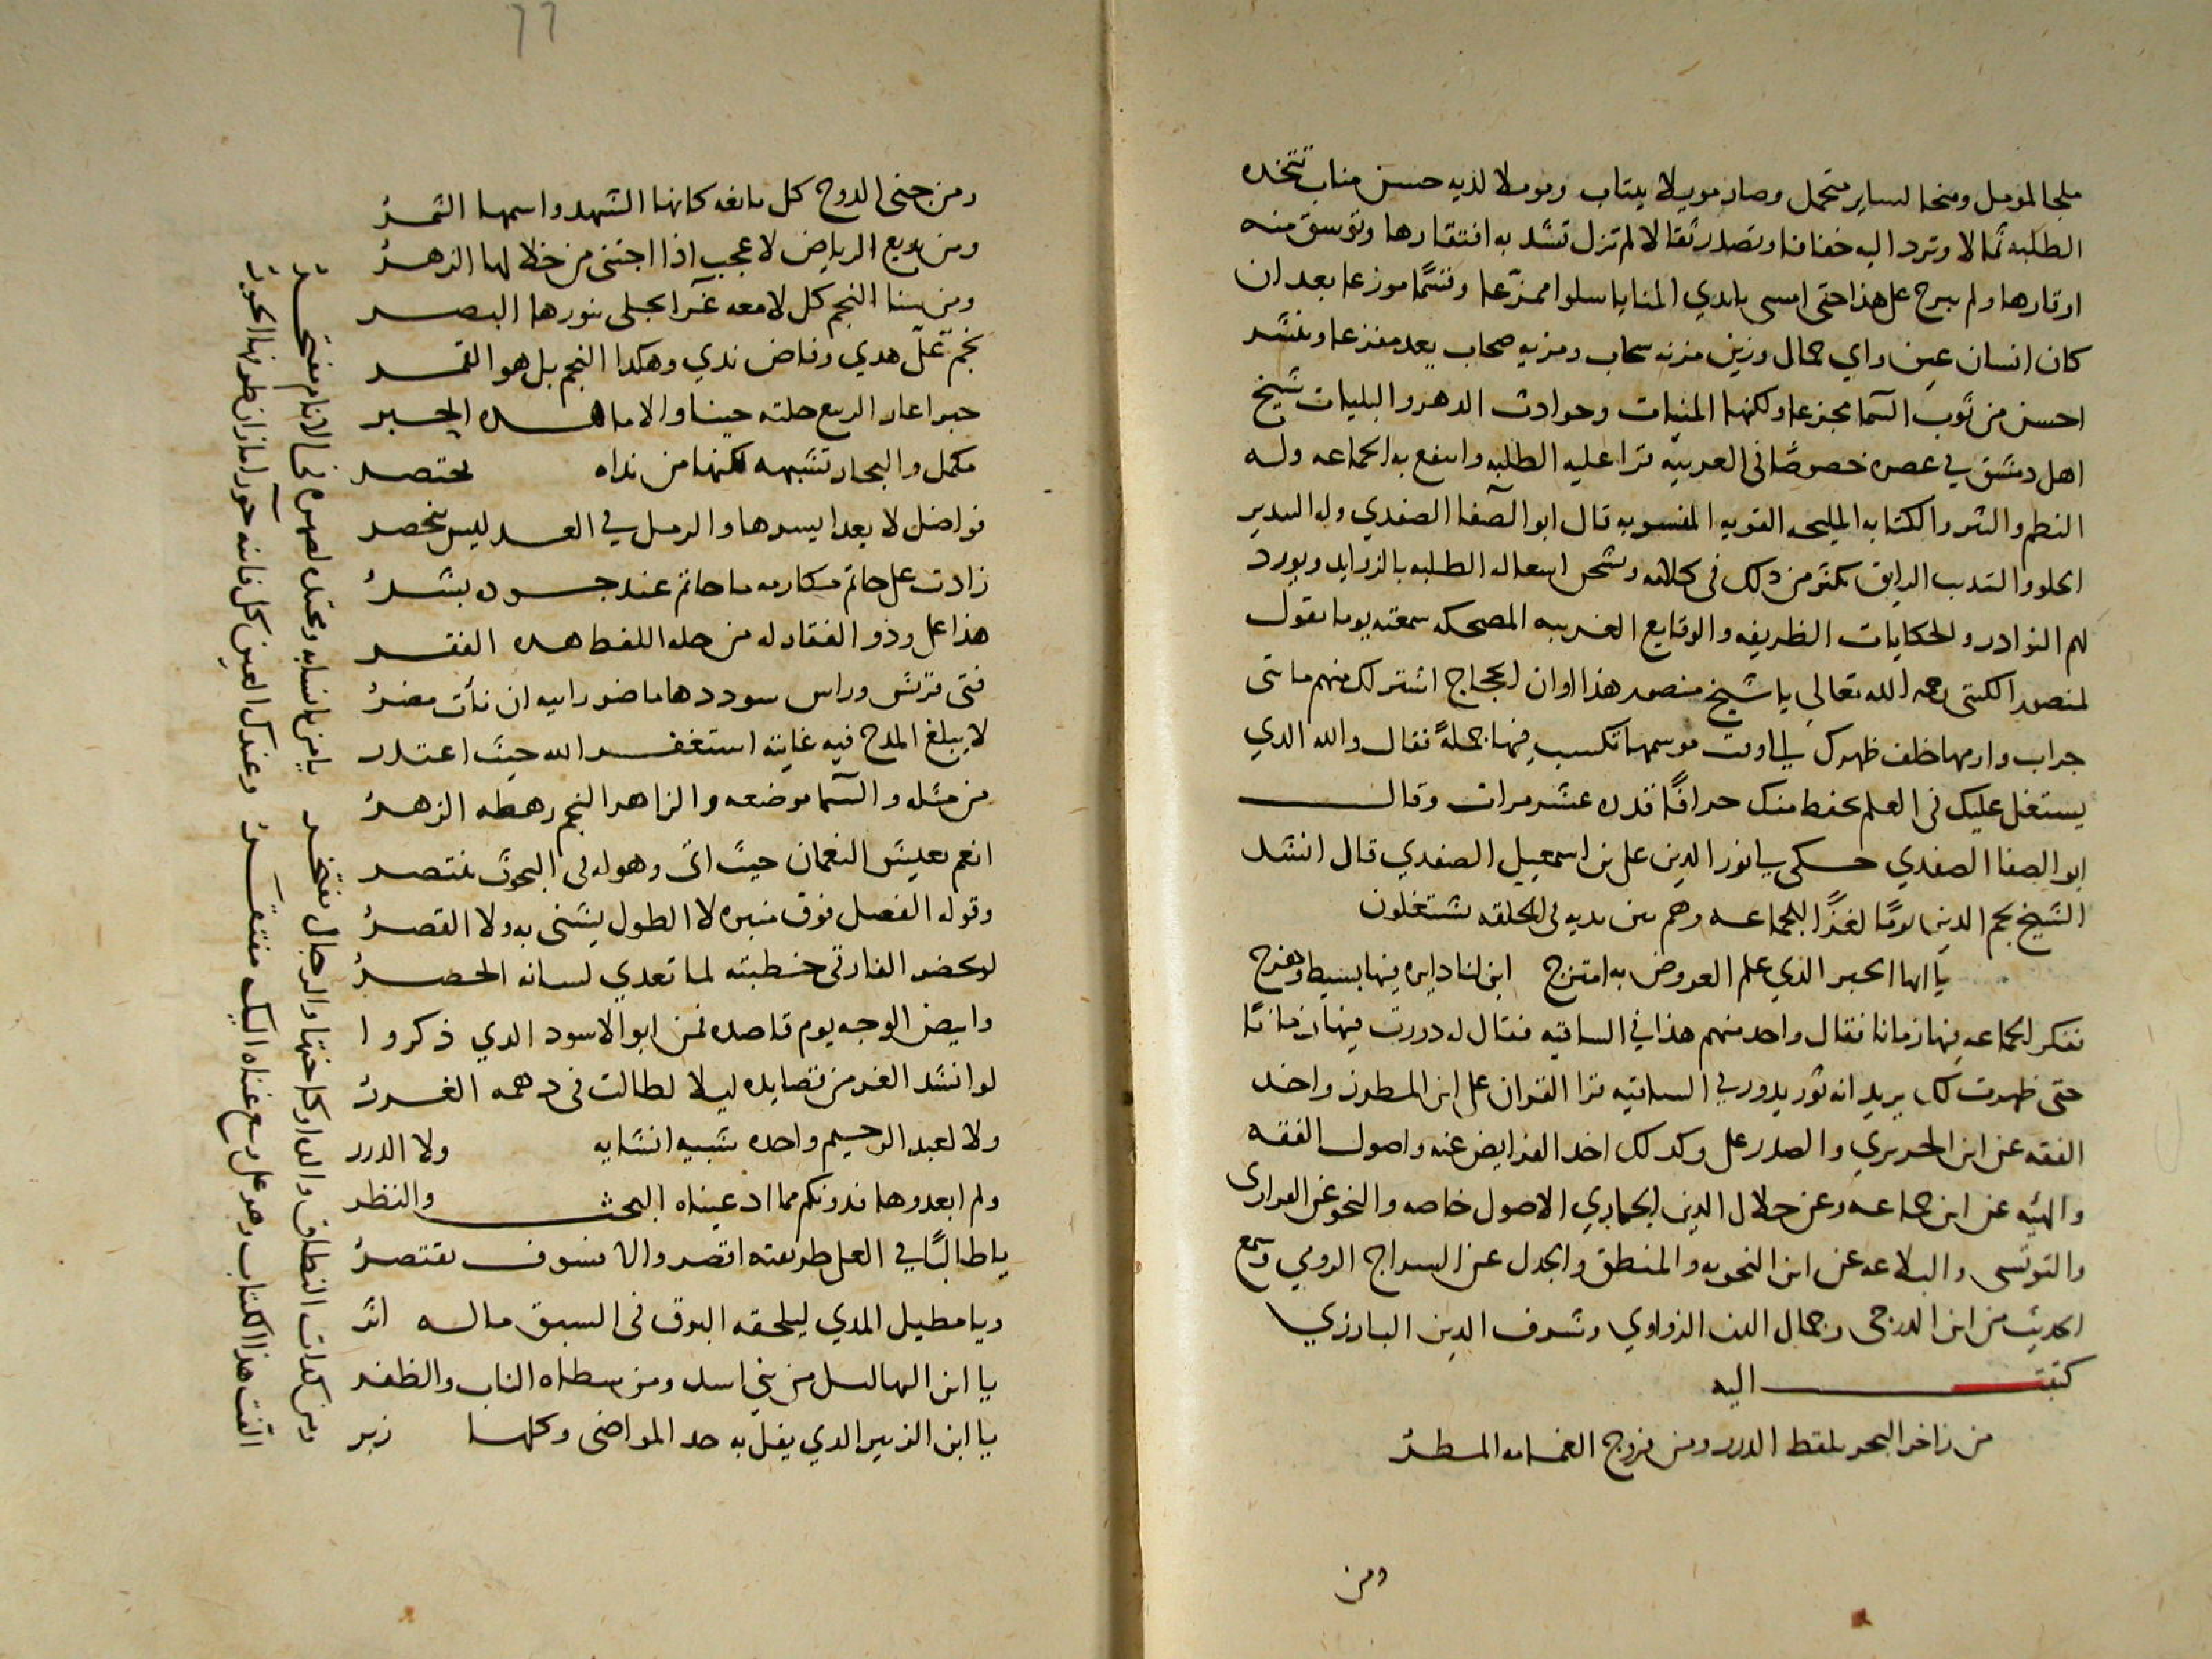 ملجا لمومل ومنحا لساير متحمل وصار موىلا يىتاب ومومولا لديه حسن مناب تتخده
الطلبه ثمالا وترد اليه خفافا وتصدر ثقالا لم تزل تشد به افتقارها وتوسق منه
اوقارها ولم يبرح على هذا حتى امسى بايدي المنايا سلوا ممزعا وقسما موزعا بعد ان
كان انسان عين راي جمال وزين مزنه سحاب ومزيه صحاب يعد مفزعا وينشر
احسن من ثوب السما مجزعا ولكنها المنيات وحوادث الدهر والبليات شيخ
اهل دمشق في عصره خصوصا في العربيه قرا عليه الطلبه وانتفع به الجماعه وله
النظم والنثر والكتابه المليحه القويه المنسوبه قال ابو الصفا الصفدي وله التندير
الحلو والتندب الرايق يكثر من ذلك في كلامه ويشحن اشعال الطلبه بالزوايد ويورد
لهم النوادر والحكايات الظريفه والوقايع الغريبه المضحكه سمعته يوما يقول
لمنصور الكتبي رحمه الله تعالى يا شيخ منصور هذا اوان الحجاج اشتر لك منهم مايتي
جراب وارمها خلف ظهرك الى وقت موسمها تكسب فيها جملة فقال والله الذي
يشتغل عليك في العلم يحفظ منك حرافا قدره عشر مرات وقال
ابو الصفا الصفدي حكى لي نور الدين علي بن اسمعيل الصفدي قال انشد
الشيخ نجم الدين يوما لغزا للجماعه وهم بين يديه في الحلقه يشتغلون
يا ايها الحبر الذي علم العروض به امتزج ابن لنا دايره فيها بسيط وهزج
ففكر الجماعه فيها زمانا فقال واحد منهم هذا في الساقيه فقال له دورت فيها زمانا
حتى ظهرت لك يريد انه ثور يدور في الساقيه قرا القران على ابن المطرز واخد
الفقه عن ابن الحريري والصدر علي وكدلك اخد الفرايض عنه واصول الفقه
والهيئه عن ابن جماعه وعن جلال الدين الخبازي الاصول خاصه والنحو عن الفزارى
والتونسي والبلاغه عن ابن النحويه والمنطق والجدل عن السراج الرومي وسمع
الحديث من ابن الدرجي وجمال الدين الزواوي وشرف الدين البارزي
كتبت اليه
من زاخر البحر يلقط الدرر ومن فروج الغمامه المطر
ومن
٦٦
ومن جنى الدوح كل يانعه كانها الشهد واسمها الثمر
ومن بديع الرياض لا عجب اذا اجتنى من خلالها الزهر
ومن سنا النجم كل لامعه غرا يجلى بنورها البصر
نجم تعلى هدي وفاض ندي وهكدا النجم بل هو القمر
حبر اعار الربيع حلته حينا والا ما هده الحبر
مكمل والبحار تشبهه لكنها من نداه تختصر
فواضل لا يعد ايسرها والرمل في العد ليس ينحصر
زادت على حاتم مكارمه ما حاتم عند جوده بشر
هذا علي وذو الفقار له من جله اللفظ هده الفقر
فتى قريش وراس سوددها ما ضر رابيه ان نأت مضر
لا يبلغ المدح فيه غايته استغفر الله حيث اعتدر
من مثله والسما موضعه والزاهر النجم رهطه الزهر
انعم بعيش النعمان حيث اتى وهو له في البحوث ينتصر
وقوله الفصل فوق منبره لا الطول يثنى به ولا القصر
لو يحضر الفارقي خطبته لما تعدي لسانه الحصر
وابيض الوجه يوم قاصده فمن ابو الاسود الدي ذكروا
لو انشد الغر من قصايده ليلا لطالت في دهمه الغرر
ولا لعبد الرحيم واحده شبيه انشايه ولا الدرر
ولم ابعدوها فدونكم مما ادعيناه البحث والنظر
يا طالبا في العلى طريقته اقصر والا فسوف تقتصر
ويا مطيل المدي ليلحقه البرق في السبق ماله اثر
يا ابن البهاليل من بني اسد ومن سطاه الناب والظفر
يا ابن الزبير الدي يفل به حد المواضي وكلها زبر
ومن كدات النطاق والده او كاختها والرجال تفتخر يا من بانسابه ومحتده لصهره في الانام مفتخر
القت هدا الكتاب وهو على وسع غناه اليك مفتقر وعندك العين كل فاتنه حورا ما زان طرفها الحور